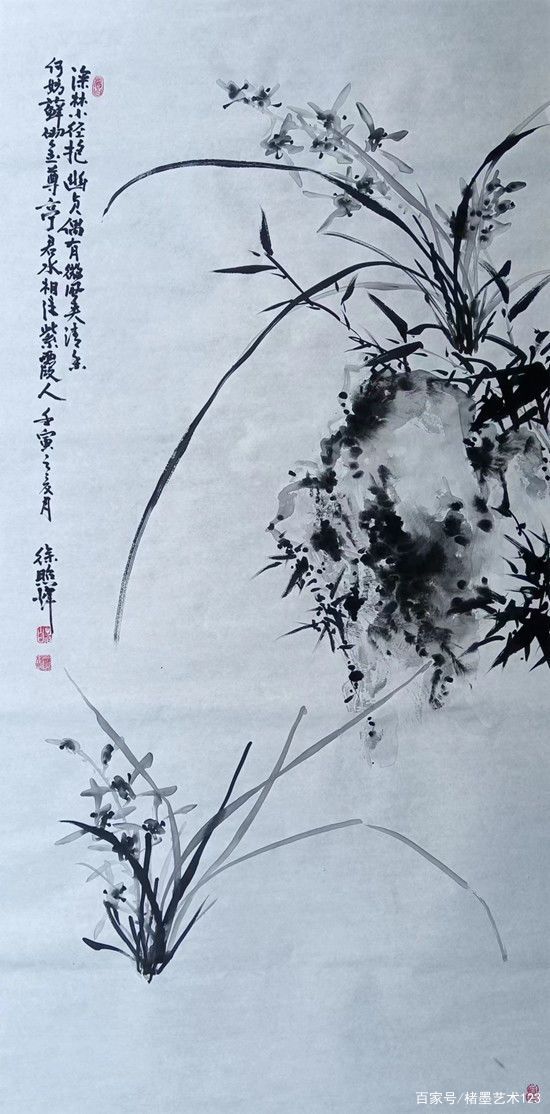 深林小径抱幽贞偶有微风清
何金尊亭君水相紫霞人 壬寅之亥月
徐照辉
百家号/楮墨艺术123